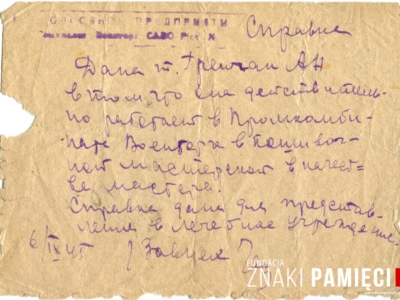 Справка
Дана т. Гречган АН
в том что она действитель-
но работает в Промкомби-
нате Военторга в пошивоч-
ной мастерской в качест-
ве мастера.
Справка дана для представ-
ления в лечебное учреждение.
6/IX
FUNDACJA
ZNAKI PAMIĘCI